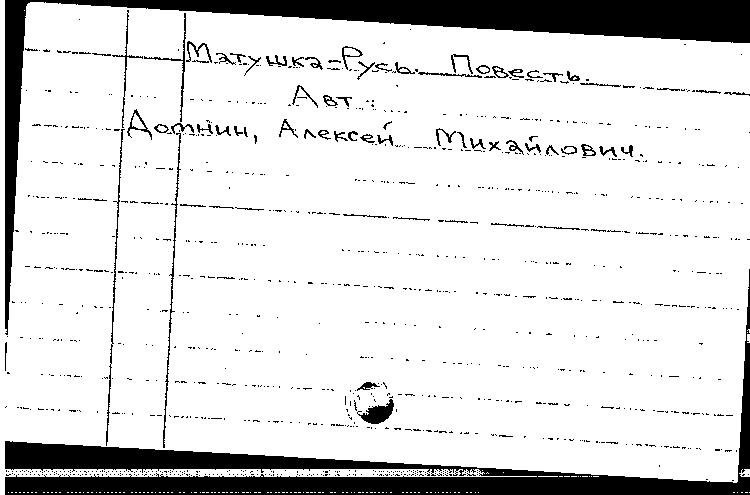 Матушка=Русь. Повесть.
Авт.:
Домнин, Алексей Михайлович.